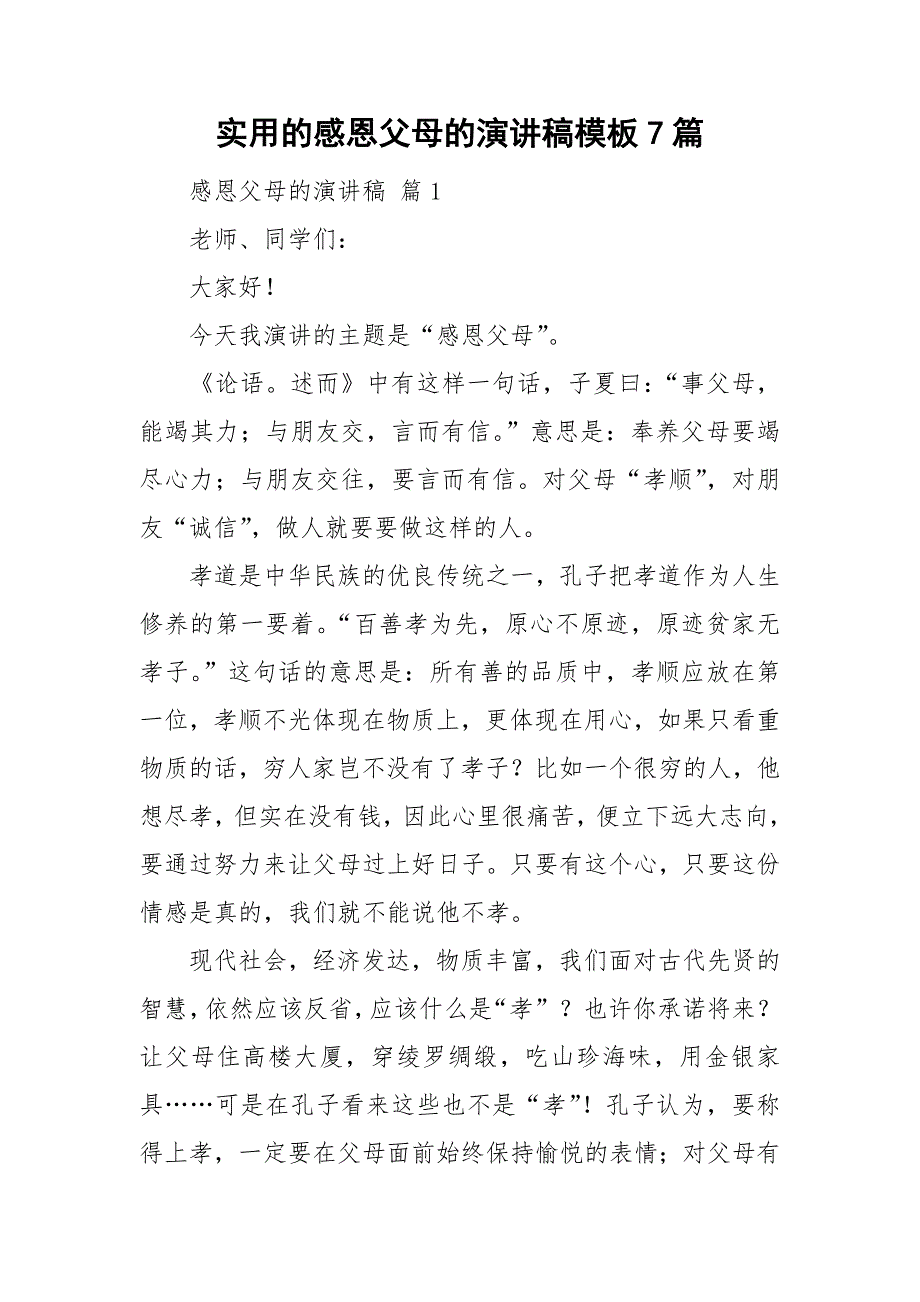 实用的感恩父母的演讲稿模板7篇
感恩父母的演讲稿 篇1
老师、同学们：
大家好！
今天我演讲的主题是“感恩父母”。
《论语。述而》中有这样一句话，子夏曰：“事父母，
能竭其力；与朋友交，言而有信。”意思是：奉养父母要竭
尽心力；与朋友交往，要言而有信。对父母“孝顺”，对朋
友“诚信”，做人就要要做这样的人。
孝道是中华民族的优良传统之一，孔子把孝道作为人生
修养的第一要着。“百善孝为先，原心不原迹，原迹贫家无
孝子。”这句话的意思是：所有善的品质中，孝顺应放在第
一位，孝顺不光体现在物质上，更体现在用心，如果只看重
物质的话，穷人家岂不没有了孝子？比如一个很穷的人，他
想尽孝，但实在没有钱，因此心里很痛苦，便立下远大志向，
要通过努力来让父母过上好日子。只要有这个心，只要这份
情感是真的，我们就不能说他不孝。
现代社会，经济发达，物质丰富，我们面对古代先贤的
智慧，依然应该反省，应该什么是“孝”？也许你承诺将来？
让父母住高楼大厦，穿绫罗绸缎，吃山珍海味，用金银家
具……可是在孔子看来这些也不是“孝”！孔子认为，要称
得上孝，一定要在父母面前始终保持愉悦的表情；对父母有